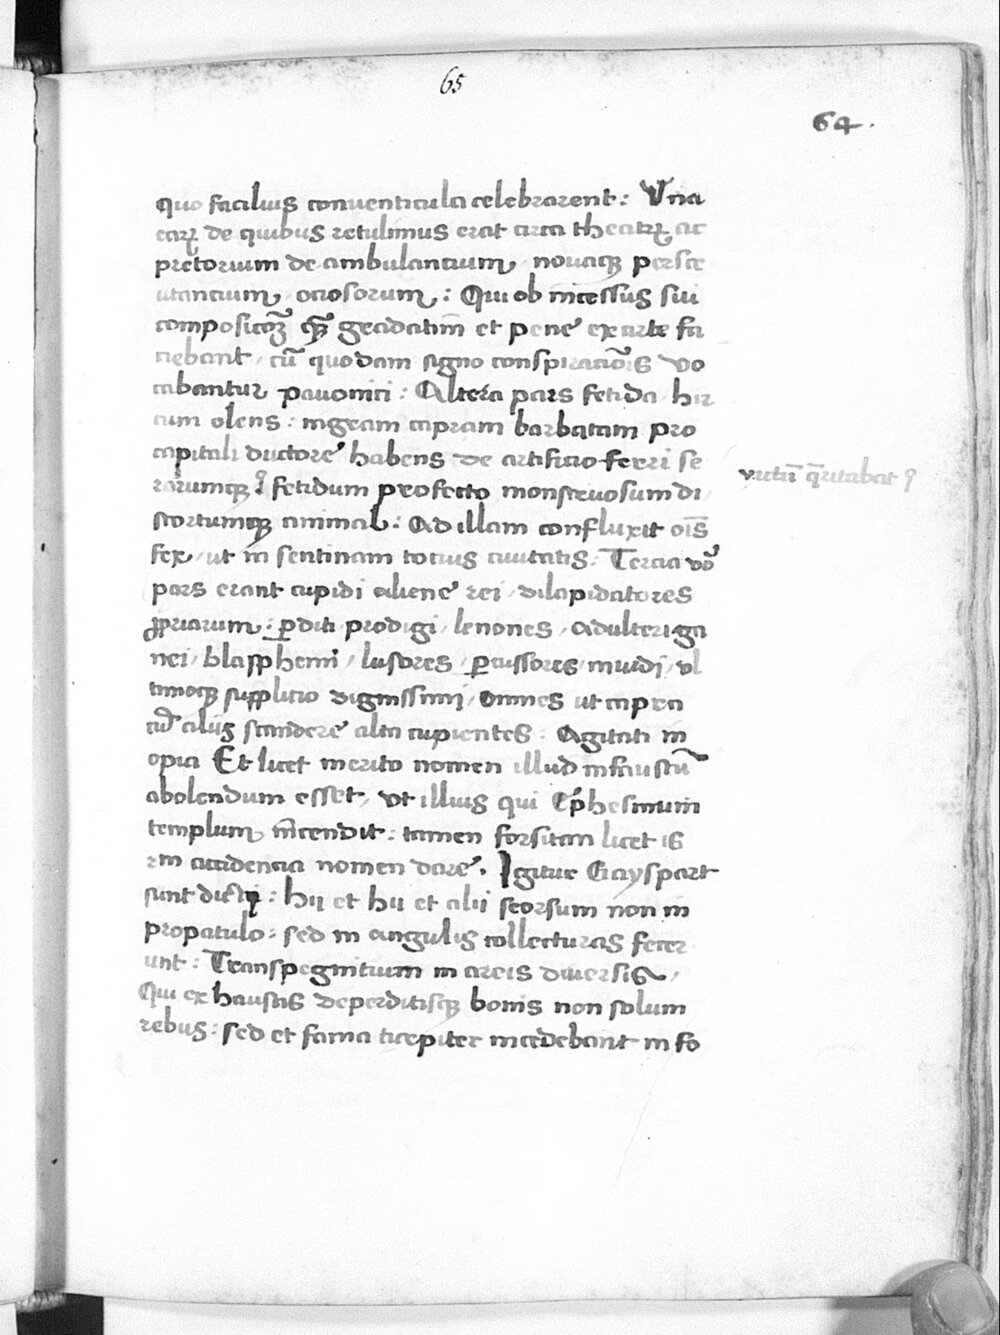 65
64.
quo facilius conventicula celebrarent: Una
earꝝ de quibus retulimus erat circa theatrꝝ ac
pretorium de ambulancium, novaqꝫ persc
utancium, ociosorum,: Qui ob incessus sui
gradatim et pene' ex arte fa
ciebant, cū quodam signo conspiracōis vo
cabantur pavonici: Altera pars fetida hir
cum olens: ingeam capram barbatam pro
capitali ductore' habens de artificio ferri se
fetidum profecto monstruosum di
stortumqꝫ animal: Ad illam confluxit oīs
fex, ut in sentinam tocius civitatis: Tercia vō
pars erant cupidi aliene' rei, dilapidatores
ꝓpriarum: ꝑditi prodigi, lenones, adulteri ga
nei, blasphemi, lusores, ꝑcussores, invidi, ul
timoqꝫ supplicio dignissimi, omnes ut capra
aliis scandere' alta cupientes: Agitati in
opia Et licet merito nomen illud infaustū
abolendum esset, ut illius qui Ephesinum
templum, incendit: tamen forsitan licet is
rm accidencia nomen dare'. Igitur Gayspart
sunt dicti: hii et hii et alii seorsum non in
propatulo: sed in angulis collecturas fecer
unt: Transpegnitium in areis diversis,
Qui exhaustis deperditisqꝫ bonis non solum
rebus: sed et fama turpiter incedebant in fo